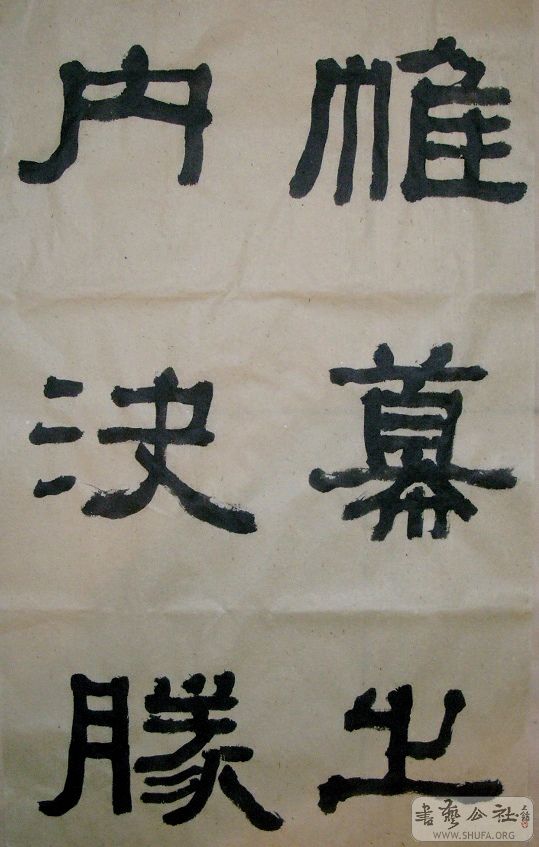 帷幕之
内決勝
書藝公社
WWW.SHUFA.ORG